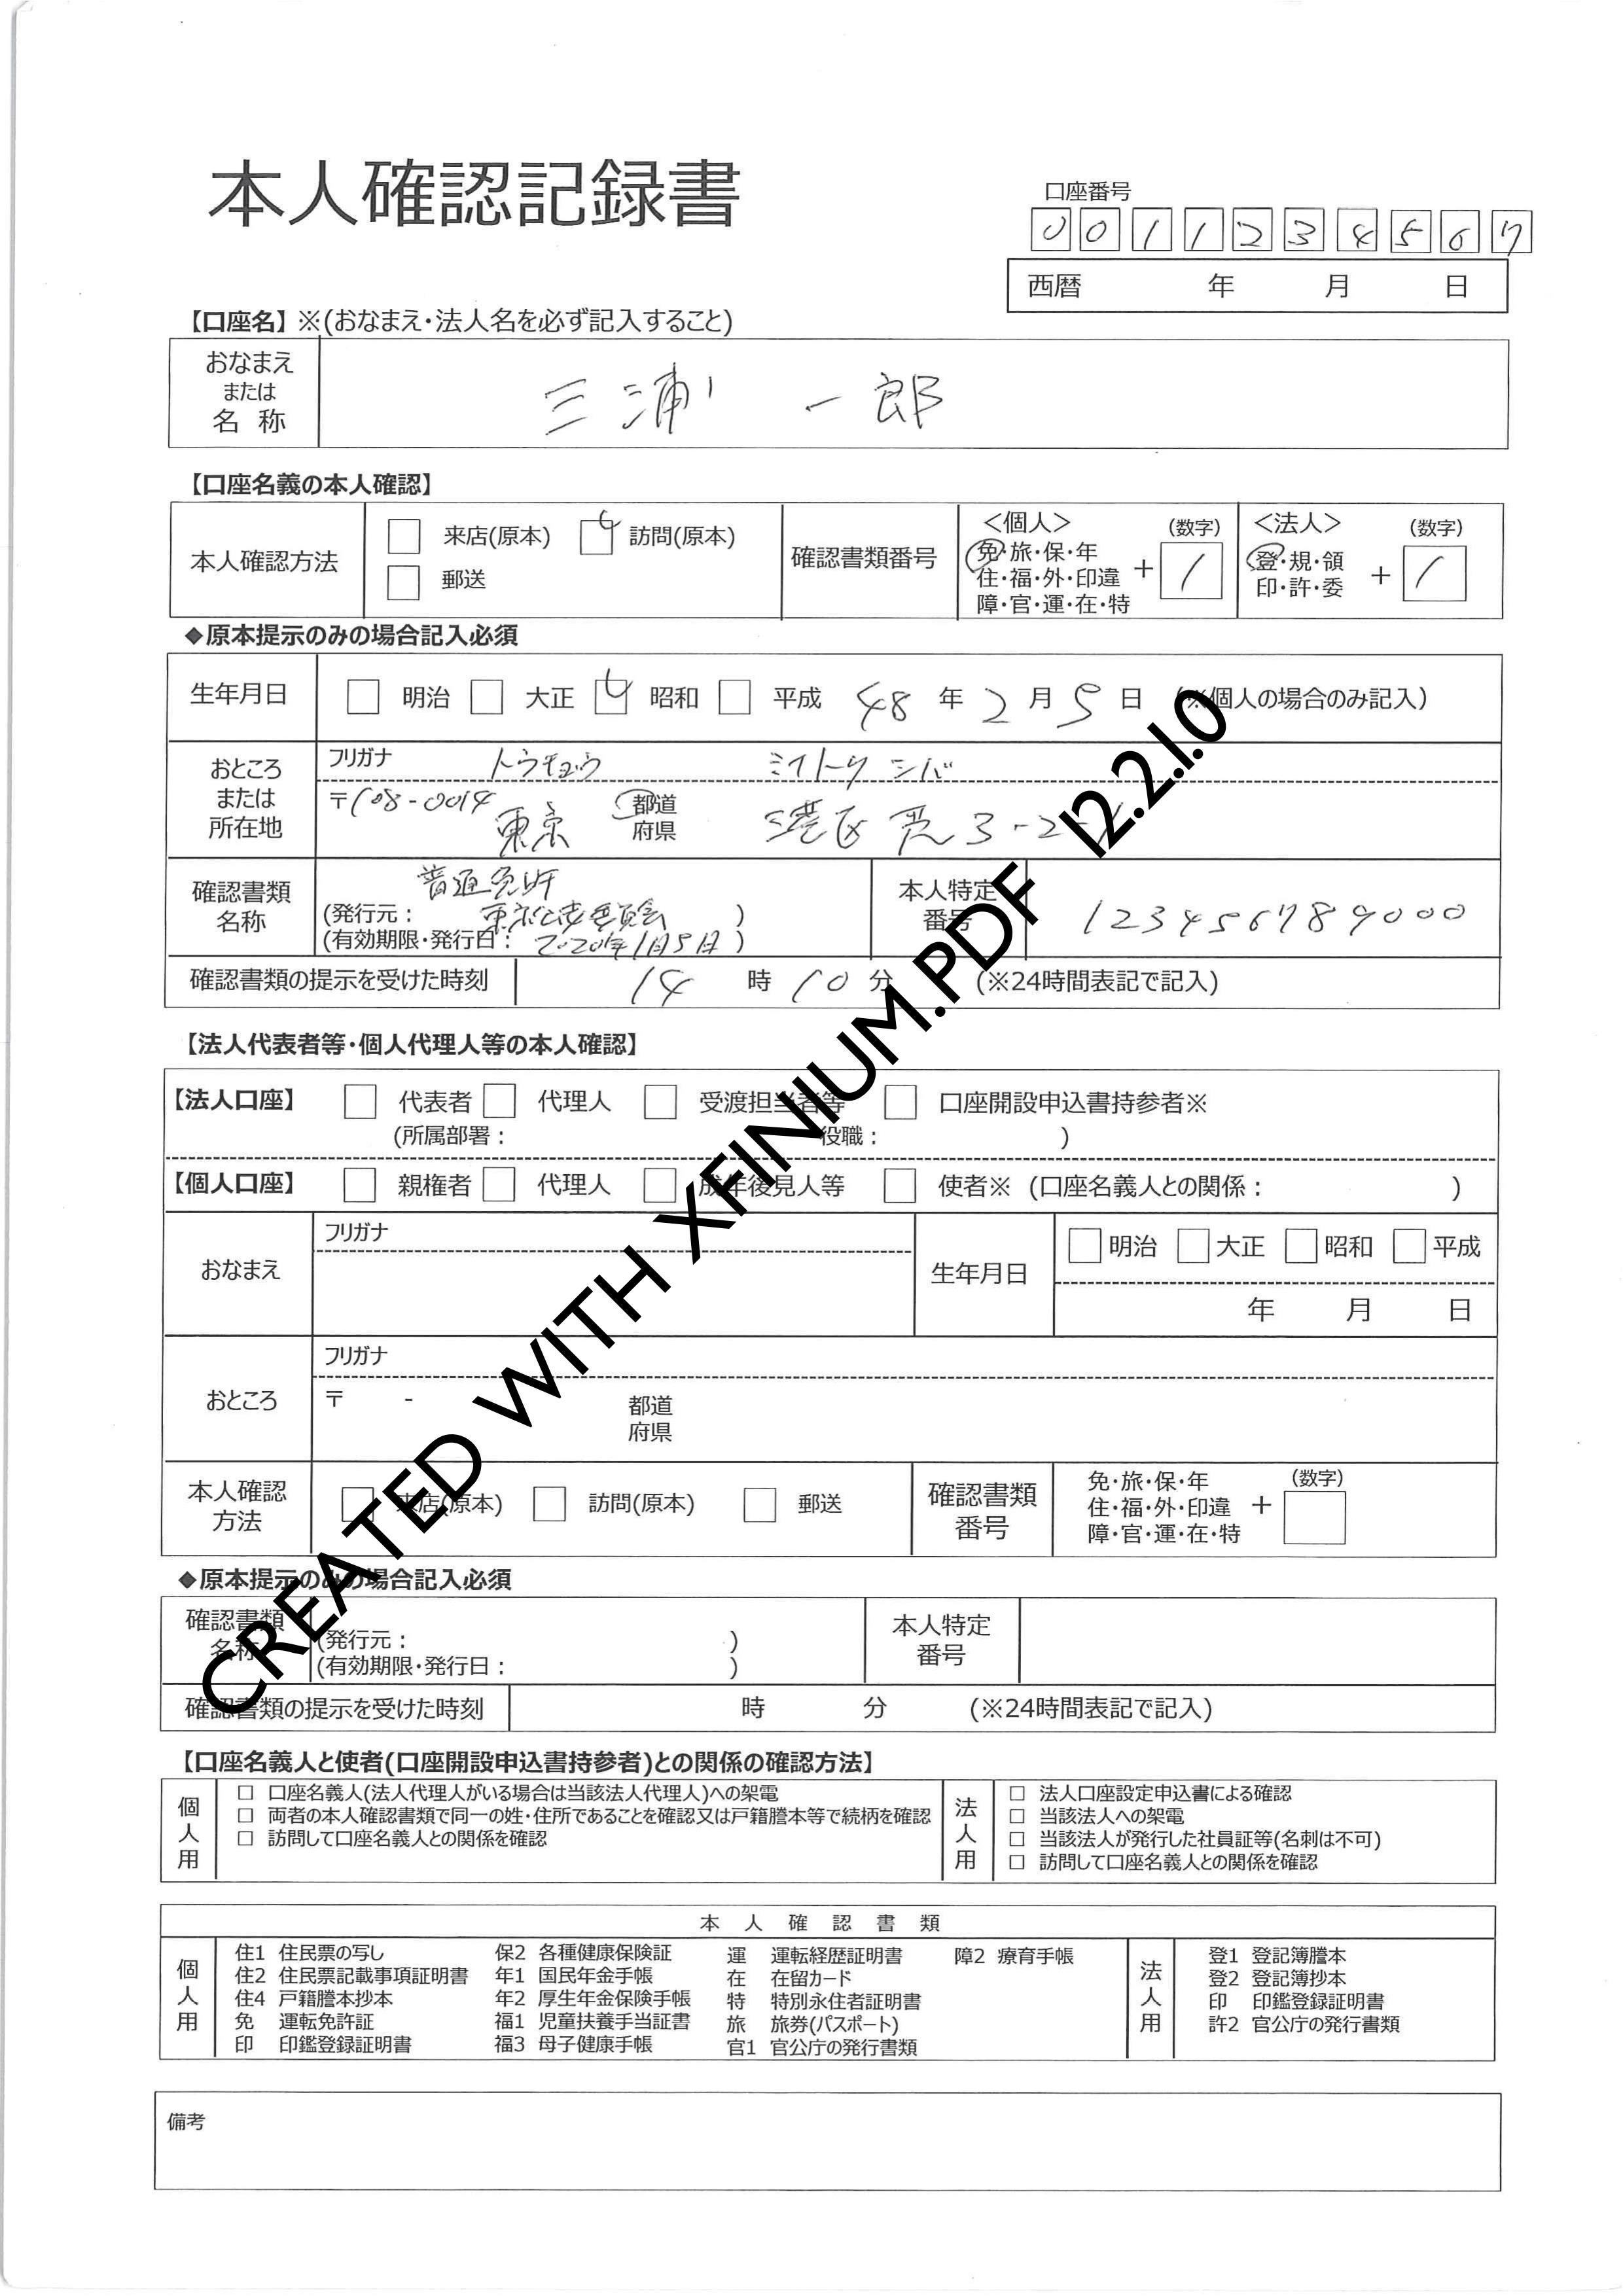 本人確認記録書
口座番号
0011234567
西暦 年 月 日
【口座名】※(おなまえ・法人名を必ず記入すること)
おなまえ
または
名 称
三浦 一郎
【口座名義の本人確認】
本人確認方法
来店(原本) 訪問(原本)
郵送
確認書類番号
＜個人＞ (数字)
免・旅・保・年
住・福・外・印違 + 1
障・官・運・在・特
＜法人＞ (数字)
登・規・領
印・許・委 + 1
◆原本提示のみの場合記入必須
生年月日 明治 大正 昭和 平成 48 年 2 月 5 日 (※個人の場合のみ記入)
おところ
または
所在地
フリガナ トウキョウ
〒108-0014 東京 都道府県 港区芝3-2-1
確認書類
名称
普通免許
(発行元： 東京公安委員会 )
(有効期限・発行日： 2020年1月5日 )
本人特定
番号
123456789000
確認書類の提示を受けた時刻 14 時 10 分 (※24時間表記で記入)
【法人代表者等・個人代理人等の本人確認】
【法人口座】 代表者 代理人 受渡担当者等 口座開設申込書持参者※
(所属部署： 役職： )
【個人口座】 親権者 代理人 成年後見人等 使者※ (口座名義人との関係： )
おなまえ
フリガナ
生年月日
明治 大正 昭和 平成
年 月 日
おところ
フリガナ
〒 - 都道
府県
本人確認
方法
来店(原本) 訪問(原本) 郵送
確認書類
番号
免・旅・保・年 (数字)
住・福・外・印違 +
障・官・運・在・特
◆原本提示のみの場合記入必須
確認書類
名称
(発行元： )
(有効期限・発行日： )
本人特定
番号
確認書類の提示を受けた時刻 時 分 (※24時間表記で記入)
【口座名義人と使者(口座開設申込書持参者)との関係の確認方法】
個人用
□ 口座名義人(法人代理人がいる場合は当該法人代理人)への架電
□ 両者の本人確認書類で同一の姓・住所であることを確認又は戸籍謄本等で続柄を確認
□ 訪問して口座名義人との関係を確認
法人用
□ 法人口座設定申込書による確認
□ 当該法人への架電
□ 当該法人が発行した社員証等(名刺は不可)
□ 訪問して口座名義人との関係を確認
本 人 確 認 書 類
個人用
住1 住民票の写し
住2 住民票記載事項証明書
住4 戸籍謄本抄本
免 運転免許証
印 印鑑登録証明書
保2 各種健康保険証
年1 国民年金手帳
年2 厚生年金保険手帳
福1 児童扶養手当証書
福3 母子健康手帳
運 運転経歴証明書
在 在留カード
特 特別永住者証明書
旅 旅券(パスポート)
官1 官公庁の発行書類
障2 療育手帳
法人用
登1 登記簿謄本
登2 登記簿抄本
印 印鑑登録証明書
許2 官公庁の発行書類
備考
CREATED WITH XFINIUM.PDF 12.2.1.0